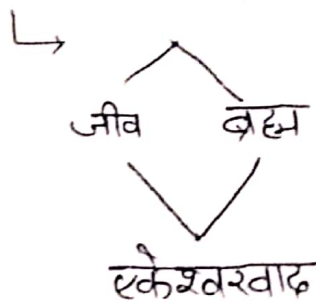 जीव ब्रह्म
एकेश्वरवाद